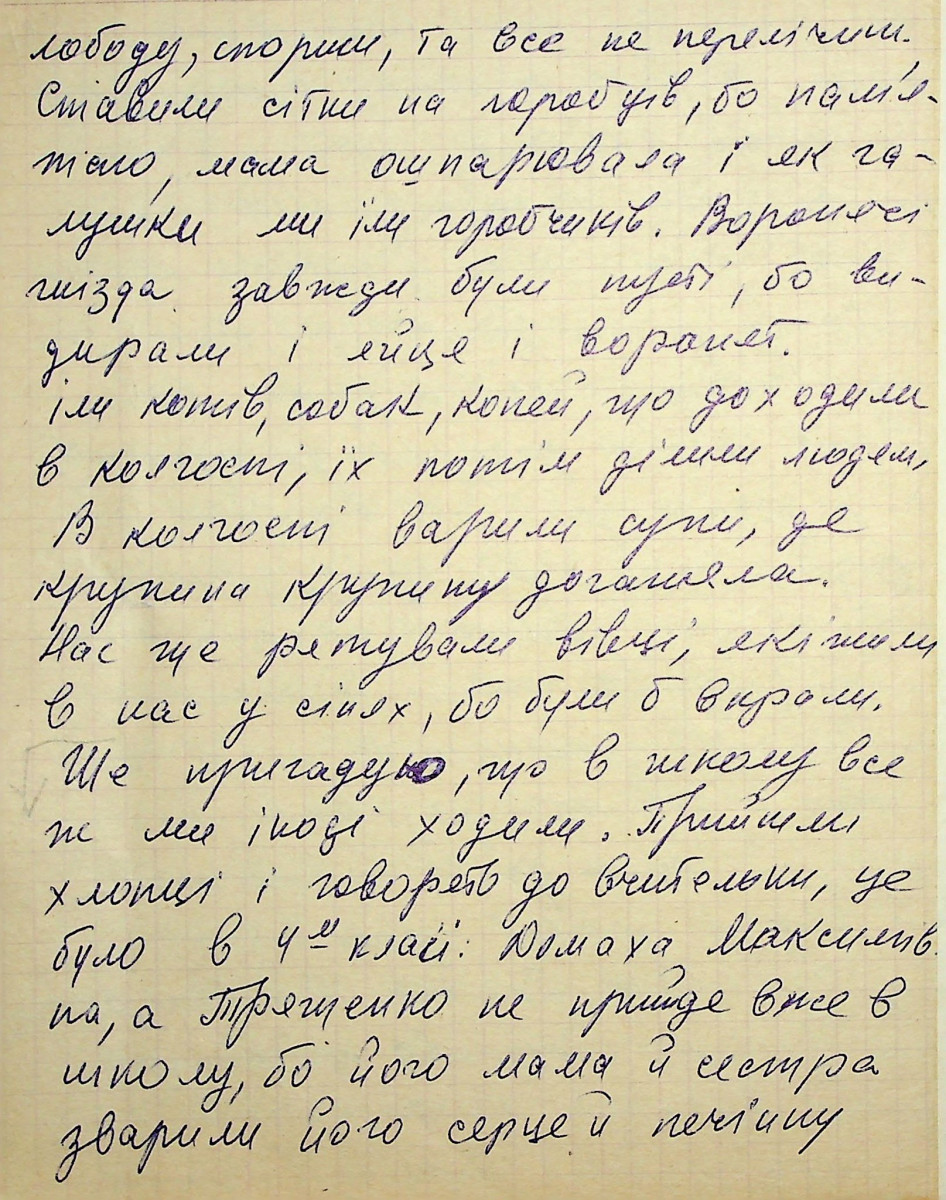 лободу, спориш, та все не перелічиш.
Ставили сітки на горобців, бо пам'я-
таю, мама ошпарювала і як га-
лушки ми їли горобчиків. Воронячі
гнізда завжди були пусті, бо ви-
дирали і яйця і воронят.
їли котів, собак, коней, що доходили
в колгоспі, їх потім ділили людям,
В колгоспі варили супи, де
крупина крупину доганяла.
Нас ще рятували вівці, які жили
в нас у сінях, бо були б вкрали.
Ще пригадую, що в школу все
ж ми іноді ходили. Прийшли
хлопці і говорять до вчительки, це
було в 4м класі: Домаха Максимів-
на, а Трященко не прийде вже в
школу, бо його мама й сестра
зварили його серце й печінку